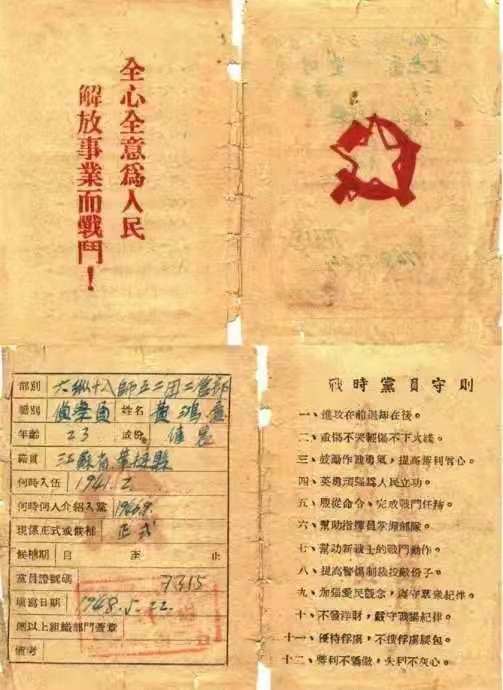 全心全意爲人民
解放事業而戰鬥！
部別 六纵十八師五二团二营部
職別 侦察員 姓名 黄鴻
年齡 23 成份 佳农
籍貫 江蘇省
何時入伍 1941.2.
何時何人介紹入黨 1946.9.
現係正式或候補 正式
候補期 自 至 止
黨員證號碼 7315
填寫日期 1948.5.22.
團以上組織部門蓋章
備考
戰時黨員守則
一、進攻在前退却在後。
二、重傷不哭輕傷不下火綫。
三、鼓勵作戰勇氣，提高勝利信心。
四、英勇頑强爲人民立功。
五、服從命令、完成戰鬥任務。
六、幫助指揮員掌握部隊。
七、幫助新戰士的戰鬥動作。
八、提高警惕制裁投敵份子。
九、加强愛民觀念，遵守羣衆紀律。
十、不發洋財，嚴守戰場紀律。
十一、優待俘虜，不搜俘虜腰包。
十二、勝利不驕傲，失利不灰心。